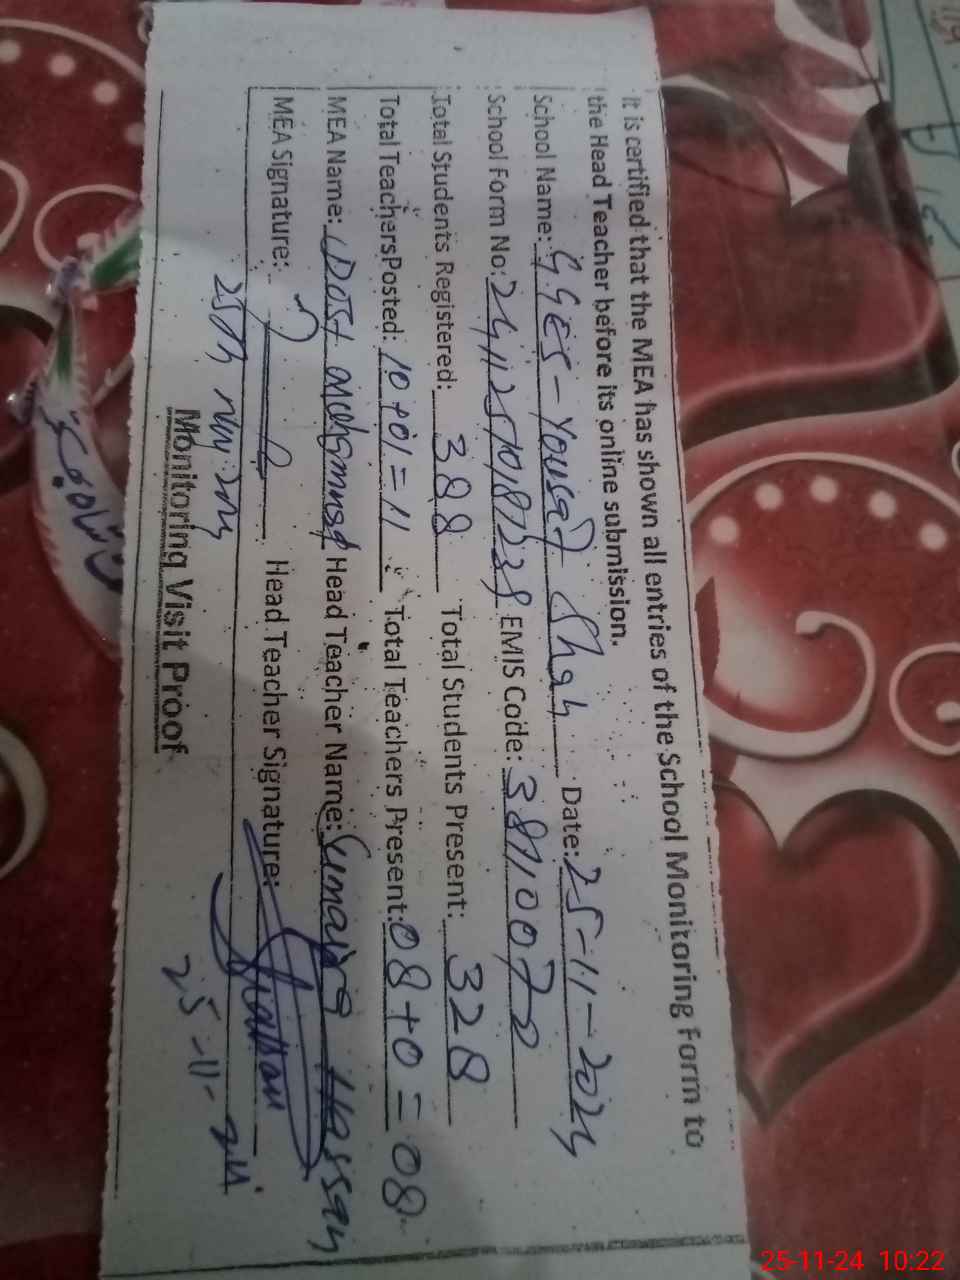 It is certified that the MEA has shown all entries of the School Monitoring Form to
the Head Teacher before its online submission.
School Name: GGES - Yousaf Shah Date: 25-11-2024
School Form No: EMIS Code: 38710072
Total Students Registered: 388 Total Students Present: 328
Total Teachers Posted: 10+01=11 Total Teachers Present: 08+0=08
MEA Name: Dost Head Teacher Name: Sumaira Hassan
MEA Signature: Head Teacher Signature:
25-11-24
Monitoring Visit Proof
25-11-24 10:22